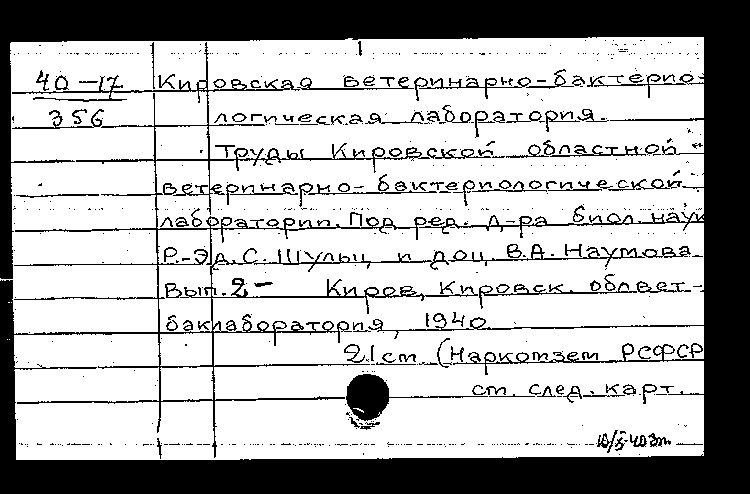 40-17
356
Кировская ветеринарно-бактерио-
логическая лаборатория.
Труды Кировской областной
ветеринарно-бактериологической
лаборатории. Под ред. д-ра биол. наук
Р.-Эд. С. Шульц и доц. В.А. Наумова
Вып. 2- Киров, Кировск. облвет-
баклаборатория, 1940
21 см. (Наркомзем РСФСР
см. след. карт.